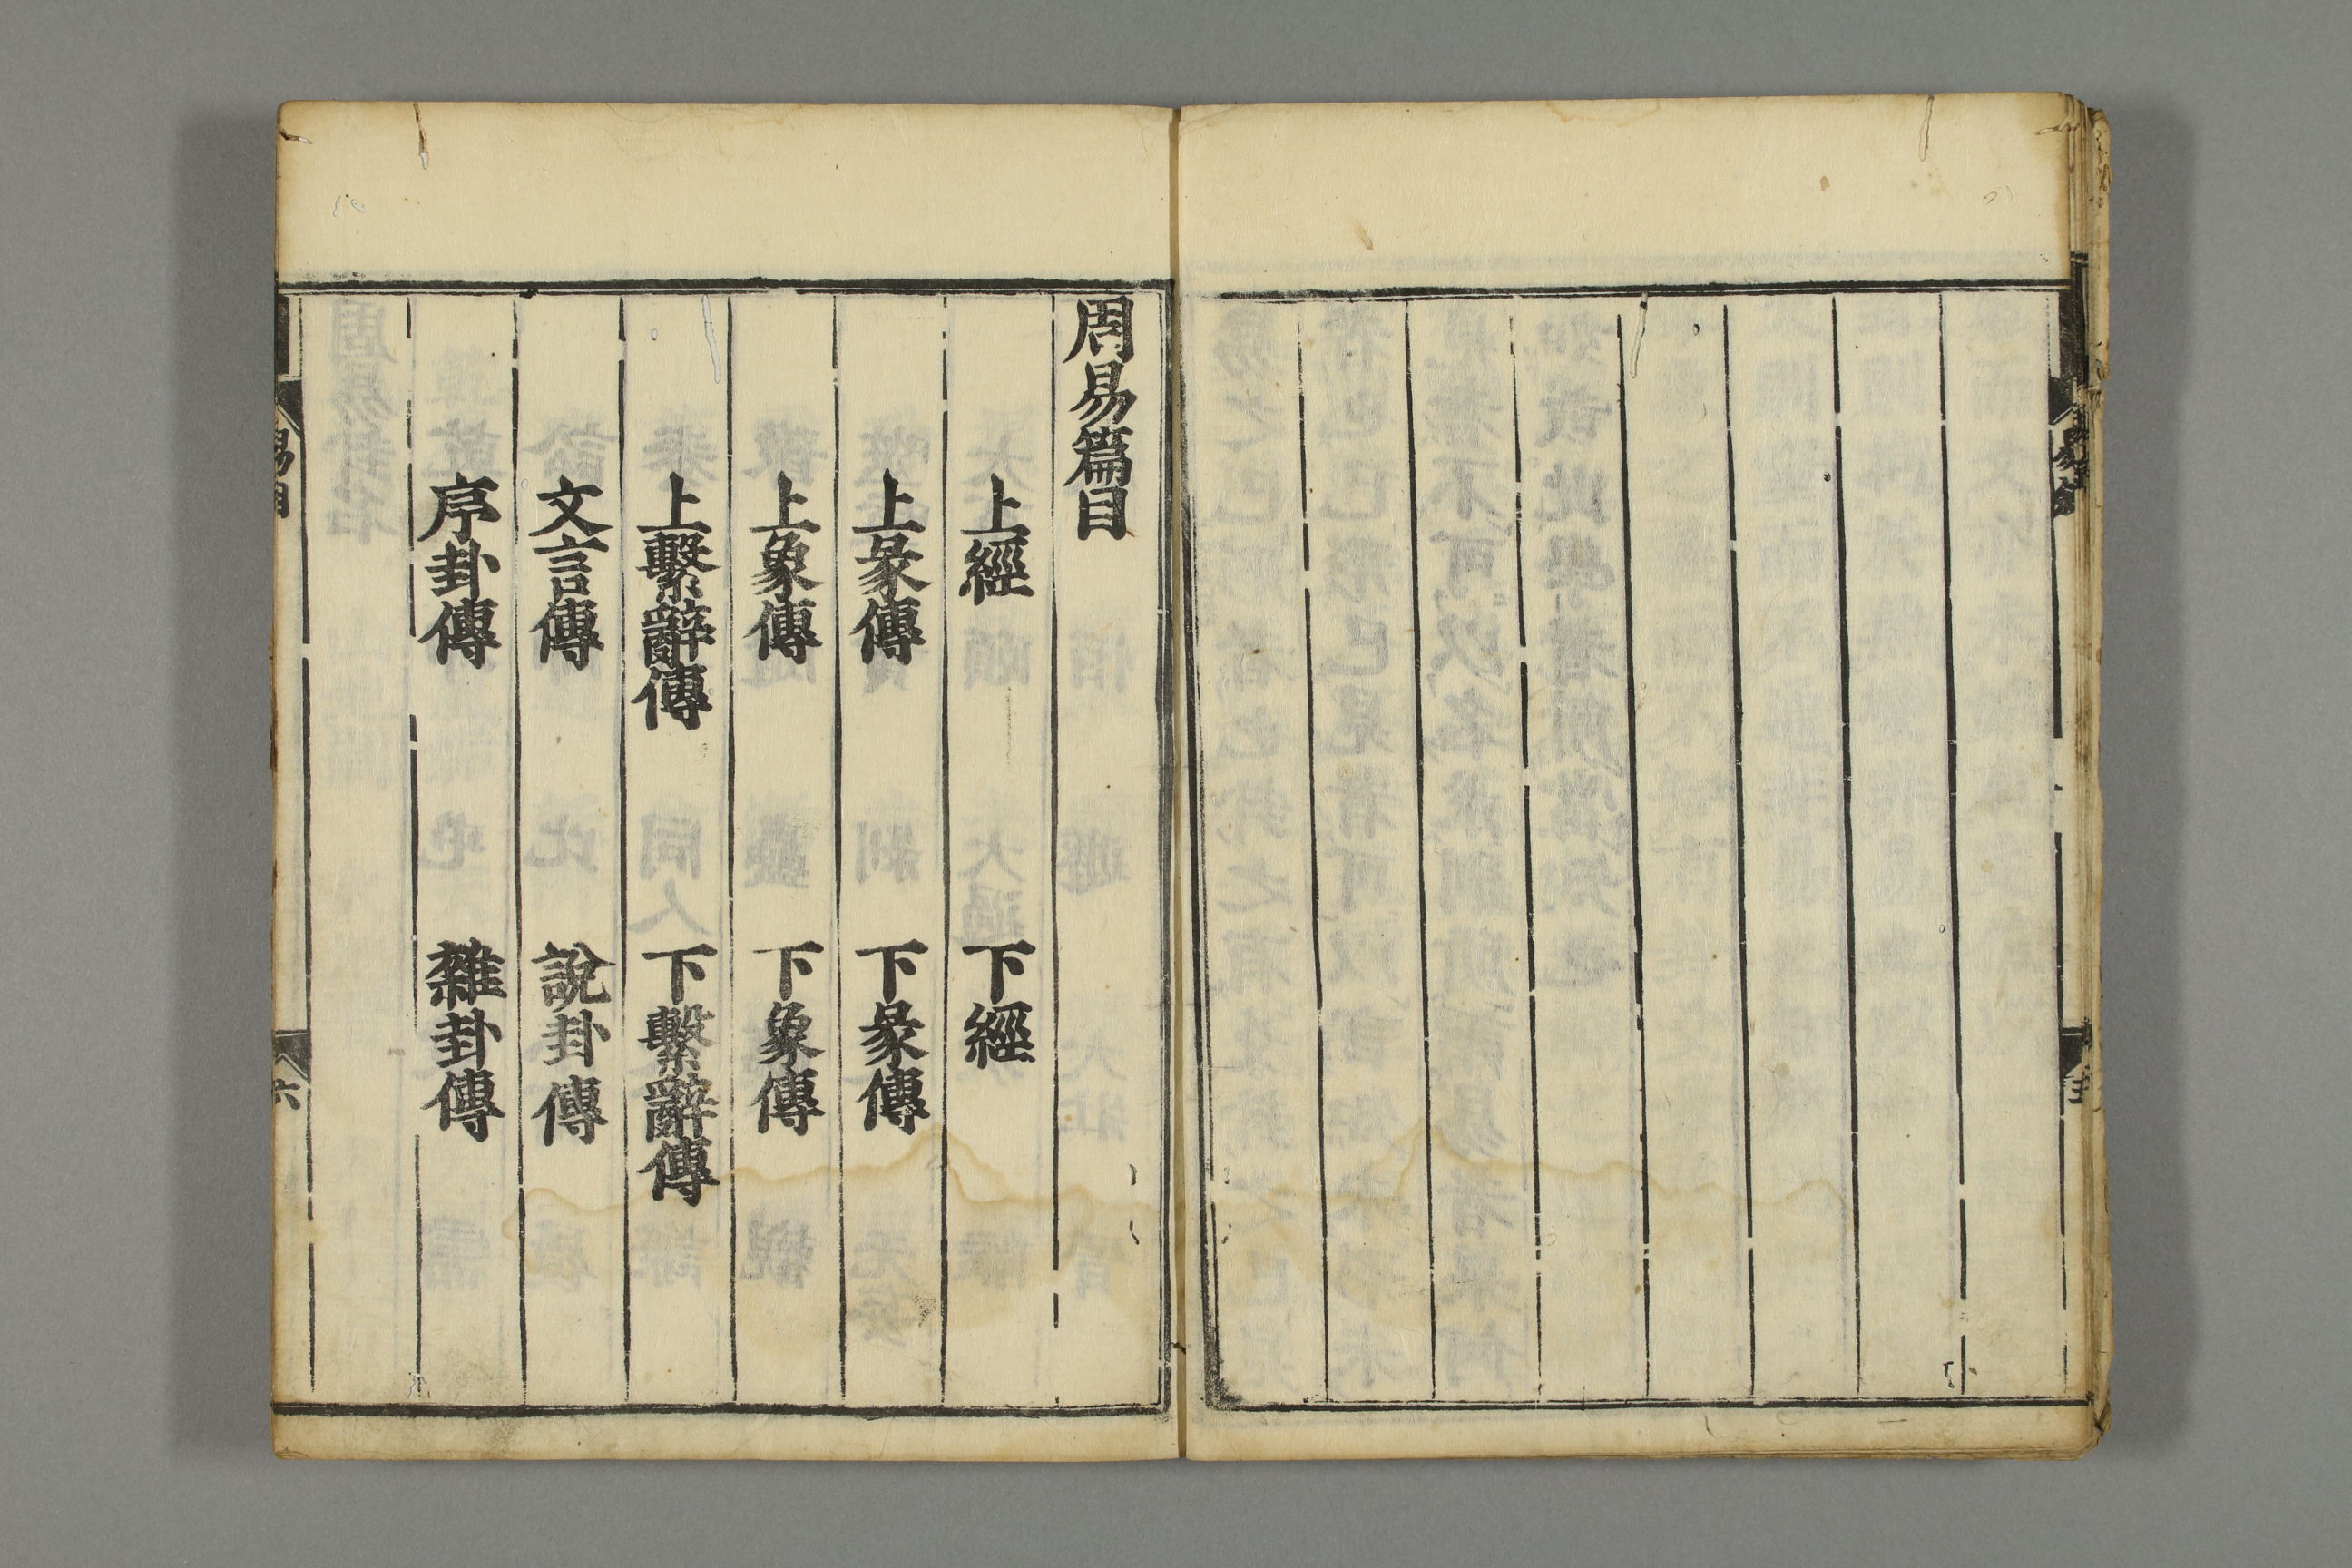 周易篇目
上經 下經
上彖傳 下彖傳
上象傳 下象傳
上繫辭傳 下繫辭傳
文言傳 說卦傳
序卦傳 雜卦傳
易目
六